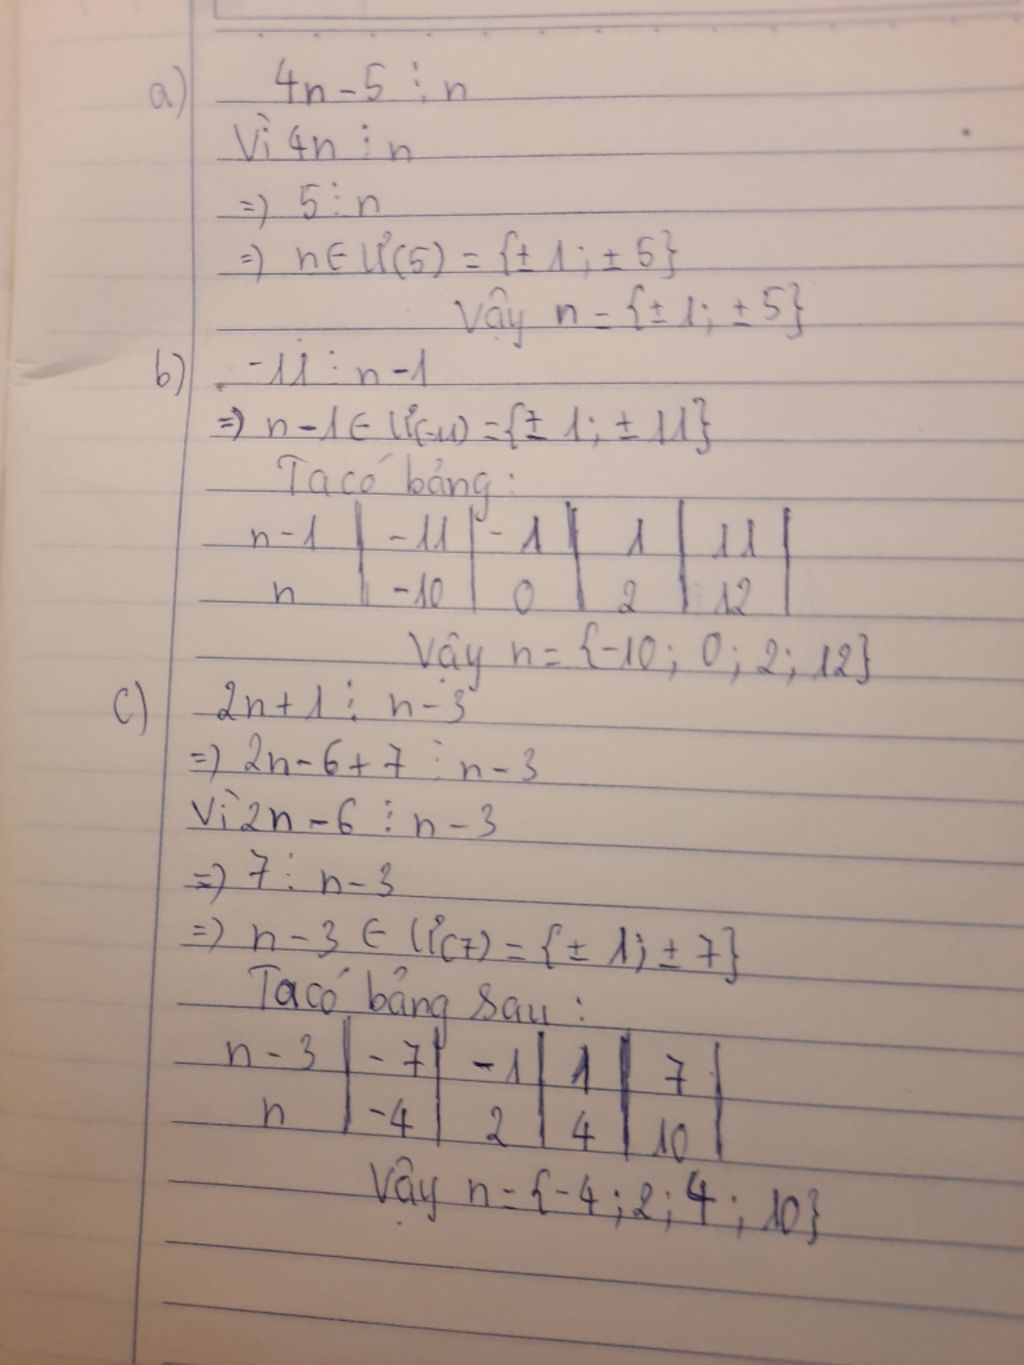 a) 4n - 5 ⋮ n
Vì 4n ⋮ n
=> 5 ⋮ n
=> n ∈ Ư(5) = {± 1; ± 5}
Vậy n = {± 1; ± 5}
b) -11 ⋮ n - 1
=> n - 1 ∈ Ư(-11) = {± 1; ± 11}
Ta có bảng:
n - 1 | -11 | -1 | 1 | 11 |
n | -10 | 0 | 2 | 12 |
Vậy n = {-10; 0; 2; 12}
c) 2n + 1 ⋮ n - 3
=> 2n - 6 + 7 ⋮ n - 3
Vì 2n - 6 ⋮ n - 3
=> 7 ⋮ n - 3
=> n - 3 ∈ Ư(7) = {± 1; ± 7}
Ta có bảng sau:
n - 3 | -7 | -1 | 1 | 7 |
n | -4 | 2 | 4 | 10 |
Vậy n = {-4; 2; 4; 10}